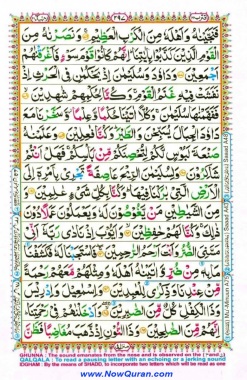 فَنَجَّيْنٰهُ وَاَهْلَهٗ مِنَ الْكَرْبِ الْعَظِيْمِ وَنَصَرْنٰهُ مِنَ
الْقَوْمِ الَّذِيْنَ كَذَّبُوْا بِاٰيٰتِنَا اِنَّهُمْ كَانُوْا قَوْمَ سَوْءٍ فَاَغْرَقْنٰهُمْ
اَجْمَعِيْنَ وَدَاوٗدَ وَسُلَيْمٰنَ اِذْ يَحْكُمٰنِ فِى الْحَرْثِ اِذْ
نَفَشَتْ فِيْهِ غَنَمُ الْقَوْمِ وَكُنَّا لِحُكْمِهِمْ شٰهِدِيْنَ
فَفَهَّمْنٰهَا سُلَيْمٰنَ وَكُلًّا اٰتَيْنَا حُكْمًا وَّعِلْمًا وَّسَخَّرْنَا مَعَ
دَاوٗدَ الْجِبَالَ يُسَبِّحْنَ وَالطَّيْرَ وَكُنَّا فٰعِلِيْنَ وَعَلَّمْنٰهُ
صَنْعَةَ لَبُوْسٍ لَّكُمْ لِتُحْصِنَكُمْ مِّنْ بَاْسِكُمْ فَهَلْ اَنْتُمْ
شٰكِرُوْنَ وَلِسُلَيْمٰنَ الرِّيْحَ عَاصِفَةً تَجْرِيْ بِاَمْرِهٖٓ اِلَى
الْاَرْضِ الَّتِيْ بٰرَكْنَا فِيْهَا وَكُنَّا بِكُلِّ شَيْءٍ عٰلِمِيْنَ وَ
مِنَ الشَّيٰطِيْنِ مَنْ يَّغُوْصُوْنَ لَهٗ وَيَعْمَلُوْنَ عَمَلًا دُوْنَ
ذٰلِكَ وَكُنَّا لَهُمْ حٰفِظِيْنَ وَاَيُّوْبَ اِذْ نَادٰى رَبَّهٗٓ اَنِّيْ
مَسَّنِيَ الضُّرُّ وَاَنْتَ اَرْحَمُ الرّٰحِمِيْنَ فَاسْتَجَبْنَا لَهٗ فَكَشَفْنَا
مَا بِهٖ مِنْ ضُرٍّ وَّاٰتَيْنٰهُ اَهْلَهٗ وَمِثْلَهُمْ مَّعَهُمْ رَحْمَةً
مِّنْ عِنْدِنَا وَذِكْرٰى لِلْعٰبِدِيْنَ وَاِسْمٰعِيْلَ وَاِدْرِيْسَ
وَذَا الْكِفْلِ كُلٌّ مِّنَ الصّٰبِرِيْنَ وَاَدْخَلْنٰهُمْ فِيْ رَحْمَتِنَا
اِنَّهُمْ مِّنَ الصّٰلِحِيْنَ وَذَا النُّوْنِ اِذْ ذَّهَبَ مُغَاضِبًا فَظَنَّ
GHUNNA : The sound emanates from the nose and is observed on the (ن and م)
QALQALA : To read a pausing letter with an echoing or a jerking sound
IDGHAM : By the means of SHADD. To incorporate two letters which will be read as one
www.NowQuran.com